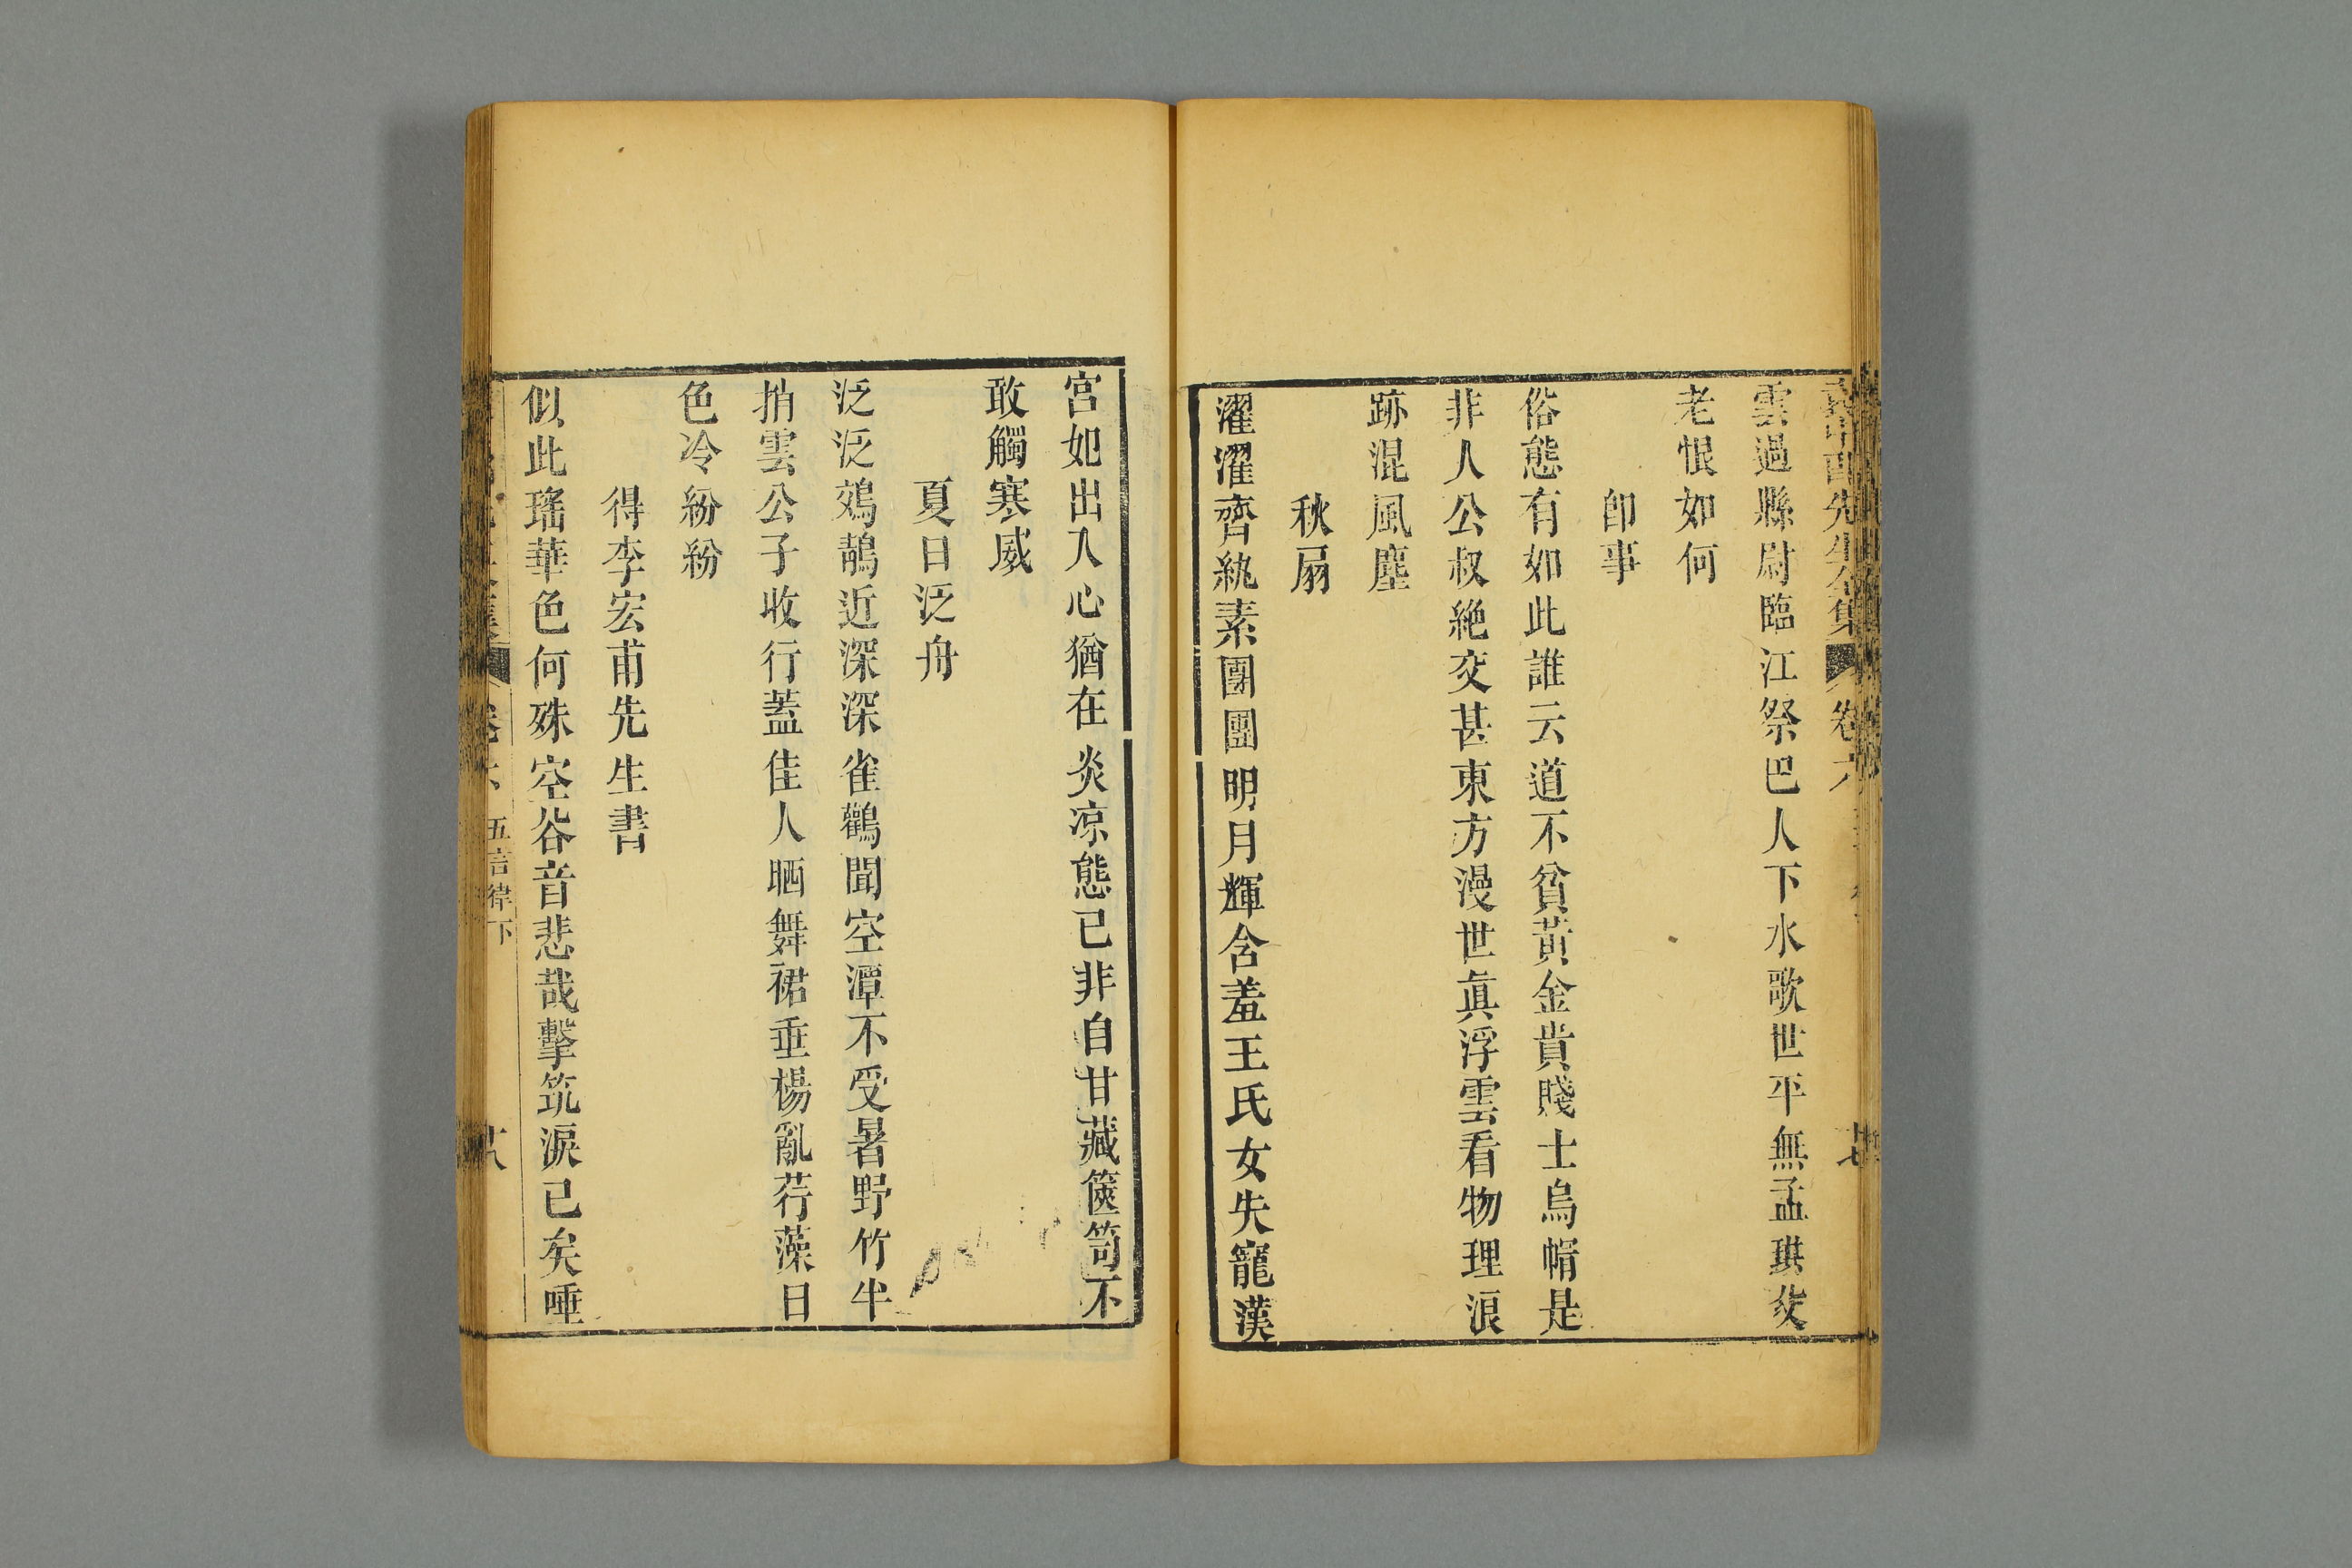 先生全集 卷六
雲過縣尉臨江祭巴人下水歌世平無孟珙攻
老恨如何
卽事
俗態有如此誰云道不貧黃金貴賤士烏幘是
非人公叔絶交甚東方漫世眞浮雲看物理浪
跡混風塵
秋扇
濯濯齊紈素團團明月輝含羞王氏女失寵漢
宮如出入心猶在炎凉態已非自甘藏篋笥不
敢觸寒威
夏日泛舟
泛泛鵁鶄近深深雀鸛聞空潭不受暑野竹半
捎雲公子收行蓋佳人晒舞裙垂楊亂荇藻日
色冷紛紛
得李宏甫先生書
似此瑤華色何殊空谷音悲哉擊筑淚已矣唾
五言律下